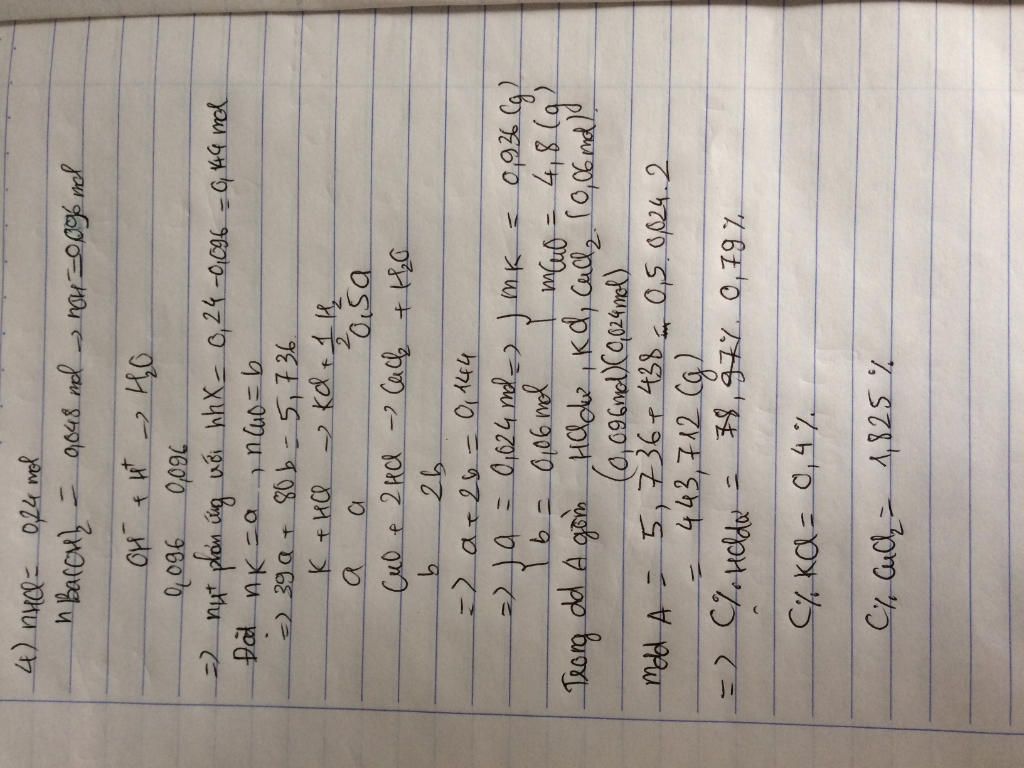 4) nHCl = 0,24 mol
nBa(OH)2 = 0,048 mol → nOH⁻ = 0,096 mol
OH⁻ + H⁺ → H2O
0,096 0,096
=> nH⁺ phản ứng với hhX = 0,24 - 0,096 = 0,144 mol
Đặt nK = a, nCuO = b
=> 39a + 80b = 5,736
K + HCl → KCl + 1/2 H2
a a 0,5a
CuO + 2HCl → CuCl2 + H2O
b 2b
=> a + 2b = 0,144
=> { a = 0,024 mol => } mK = 0,936 (g)
{ b = 0,06 mol { mCuO = 4,8 (g)
Trong dd A gồm HCl dư, KCl, CuCl2 (0,06 mol)
(0,096mol) (0,024mol)
mdd A = 5,736 + 438 - 0,5.0,024.2
= 443,712 (g)
=> C% HCl dư = 0,79%
C% KCl = 0,4%
C% CuCl2 = 1,825%